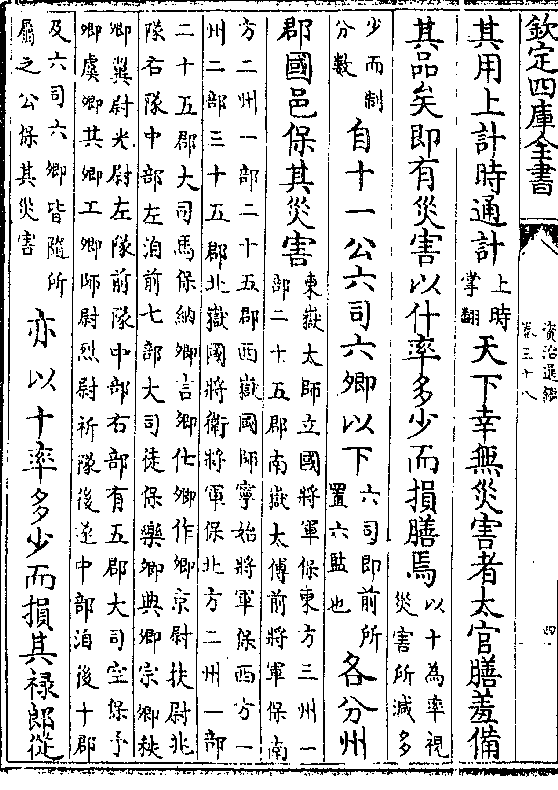 欽定四庫全書
資治通鑑
卷三十八
四
其用上計時通計上時掌翻天下幸無災害者太官膳羞備
其品矣即有災害以什率多少而損膳焉以十為率視災害所減多
少而制分數自十一公六司六卿以下六司即前所置六監也各分州
郡國邑保其災害東嶽太師立國將軍保東方三州一部二十五郡南嶽太傅前將軍保南
方二州一部二十五郡西嶽國師寧始將軍保西方一州二部三十五郡北嶽國將衛將軍保北方二州一部
二十五郡大司馬保納卿言卿仕卿作卿京尉扶尉兆隊右隊中部左洎前七部大司徒保樂卿典卿宗卿秩
卿翼尉光尉左隊前隊中部右部有五郡大司空保予卿虞卿其卿工卿師尉烈尉祈隊後遂中部洎後十郡
及六司六卿皆隨所屬之公保其災害亦以十率多少而損其禄郎從